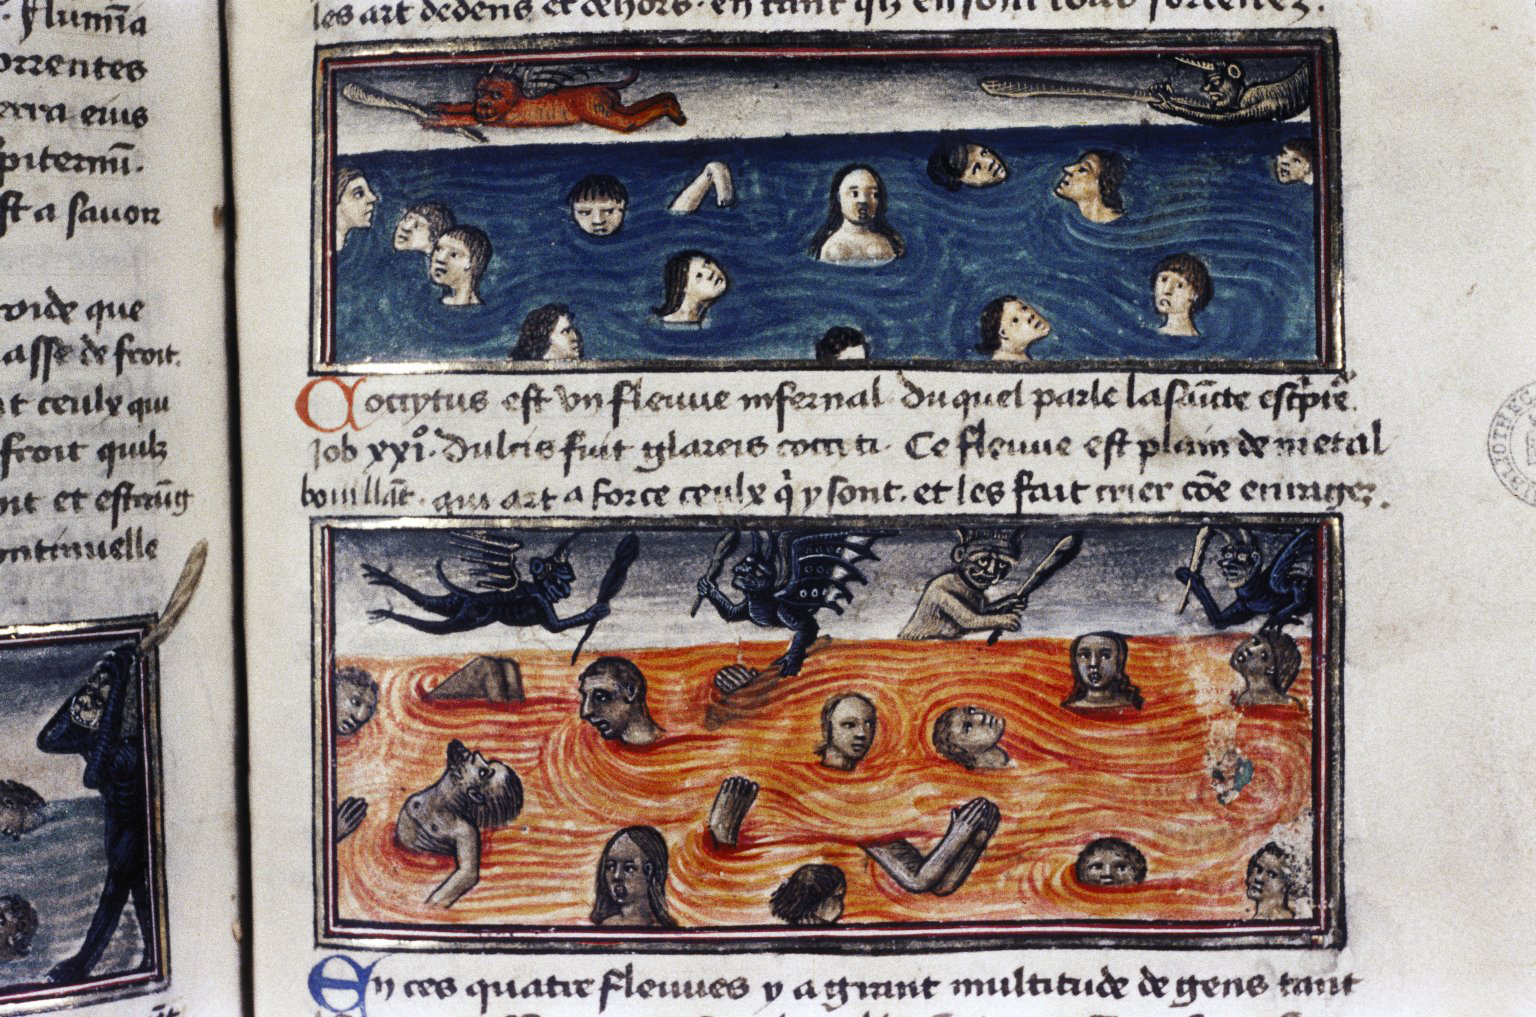 flumīa
orrentes
terra eius
piternū.
est a sauoir
froide que
asse de froit.
ceulx qui
froit quilz
oit et estrāg
ontinuelle
les art dedens et dehors. en tant qz en sont tous forcenez.
Coccytus est vn fleuue infernal. duquel parle la saīcte escpture.
Job xxio. dulcis fuit glareis cocciti. Ce fleuue est plain de metal
bouillāt. qui art a force ceulx q y sont. et les fait crier cōe enragez.
En ces quatre fleuues y a grant multitude de gens tant